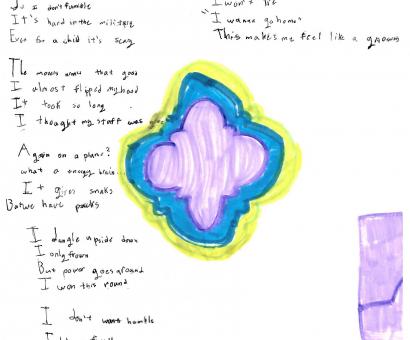 I don't fumble
It's hard in the military
Even for a child it's scary
The moves arnu that good
I almost flipped my hood
It took so long
I thought my stuff was
Again on a plane?
what a energy brain...
It gives snaks
Batwe have packs
I dangle upside down
I only frown
But power goes around
I won this round
I don't want humble
I won't lie
"I wanna go home"
This makes me feel like a